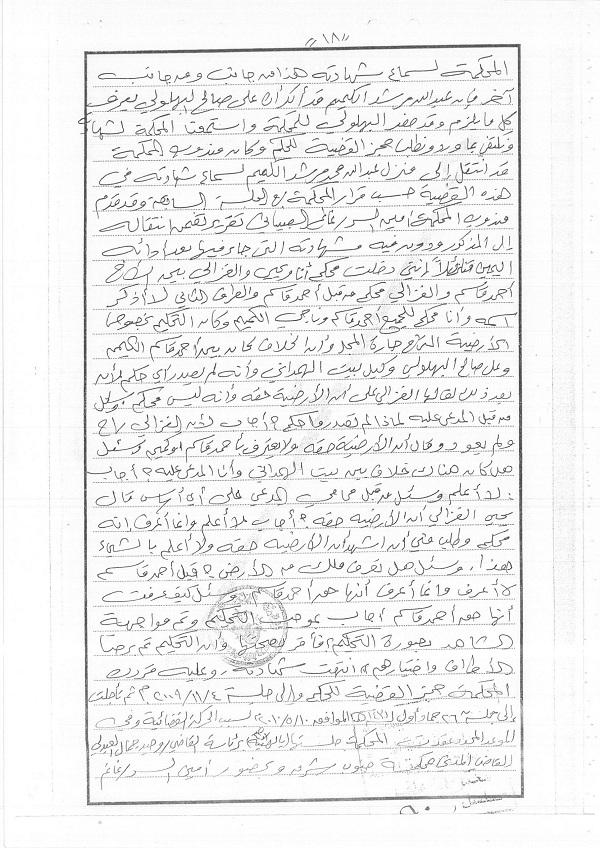 «١٨»
المحكمة لسماع شهادته هذا من جانب ومن جانب
آخر فإن عبدالله مرشد الكميم قد أنكر أن علي صالح البهلولي يعرف
كل ما يلزم وقد حضر البهلولي للمحكمة واستمعت المحكمة لشهادته
ونكتفي بما ولا ونطلب حجز القضية للحكم وكان مندوب المحكمة
قد انتقل إلى منزل عبدالله محمد مرشد الكميم لسماع شهادته في
هذه القضية حسب قرار المحكمة في الجلسة السابقة وقد قدم
مندوب المحكمة أمين السر غانم تقرير تضمن انتقاله
إلى المذكور ودون فيه شهادته التي جاء فيها بعد أدائه
اليمين قائلاً إنني دخلت محكم أنا ويحيى الغزالي بين الأخ
أحمد قاسم والغزالي محكم من قبل أحمد قاسم والطرف الثاني لا أذكر
اسمه وأنا محكم للجميع أحمد قاسم وناجي الكميم وكان التحكيم بخصوص
الأرضية التي جارة المحل وأن الخلاف كان بين أحمد قاسم الكميم
وعلي صالح البهلولي وكيل بيت الهمداني وأنه لم يصدر أي حكم لأن
بعد ذلك قال الغزالي علي أن الأرضية حقه وأنه ليس محكم وسئل
من قبل المدعى عليه لماذا لم تصدروا حكم؟ أجاب لأن الغزالي راح
ولم يعود وقال أن الأرضية حقه ولا يعترف بأحمد قاسم وسئل
هل كان هناك خلاف بين بيت الهمداني وأنا المدعى عليه؟ أجاب
: لا أعلم وسئل من قبل محامي المدعي على أي أساس قال
يحيى الغزالي أن الأرضية حقه؟ أجاب لا أعلم وإنما أعرف أنه
محكم وطلب مني أن أشهد أن الأرضية حقه ولا أعلم بالشيء
هذا، وسئل هل تعرف ملك من الأرض؟ قبل أحمد قاسم
لا أعرف وإنما أعرف أنها حق أحمد قاسم وسئل كيف عرفت
أنها حق أحمد قاسم أجاب بموجب التحكيم وتم مواجهة
الشاهد بصورة التحكيم فأقر بصحتها وأن التحكيم تم برضا
الأطراف واختيارهم انتهت شهادته، وعليه قررت
المحكمة حجز القضية للحكم وإلى جلسة ٢٠٠٩/١١/٤م ثم تأجلت
إلى جلسة ٢٦ جماد أول الموافق ٢٠١٠/٥/١٠ بسبب الحركة القضائية وفي
الموعد المحدد عقدت المحكمة جلستها برئاسة القاضي/ وحيد جمال
القاضي بمحكمة جنوب شرق وبحضور أمين السر/ غانم